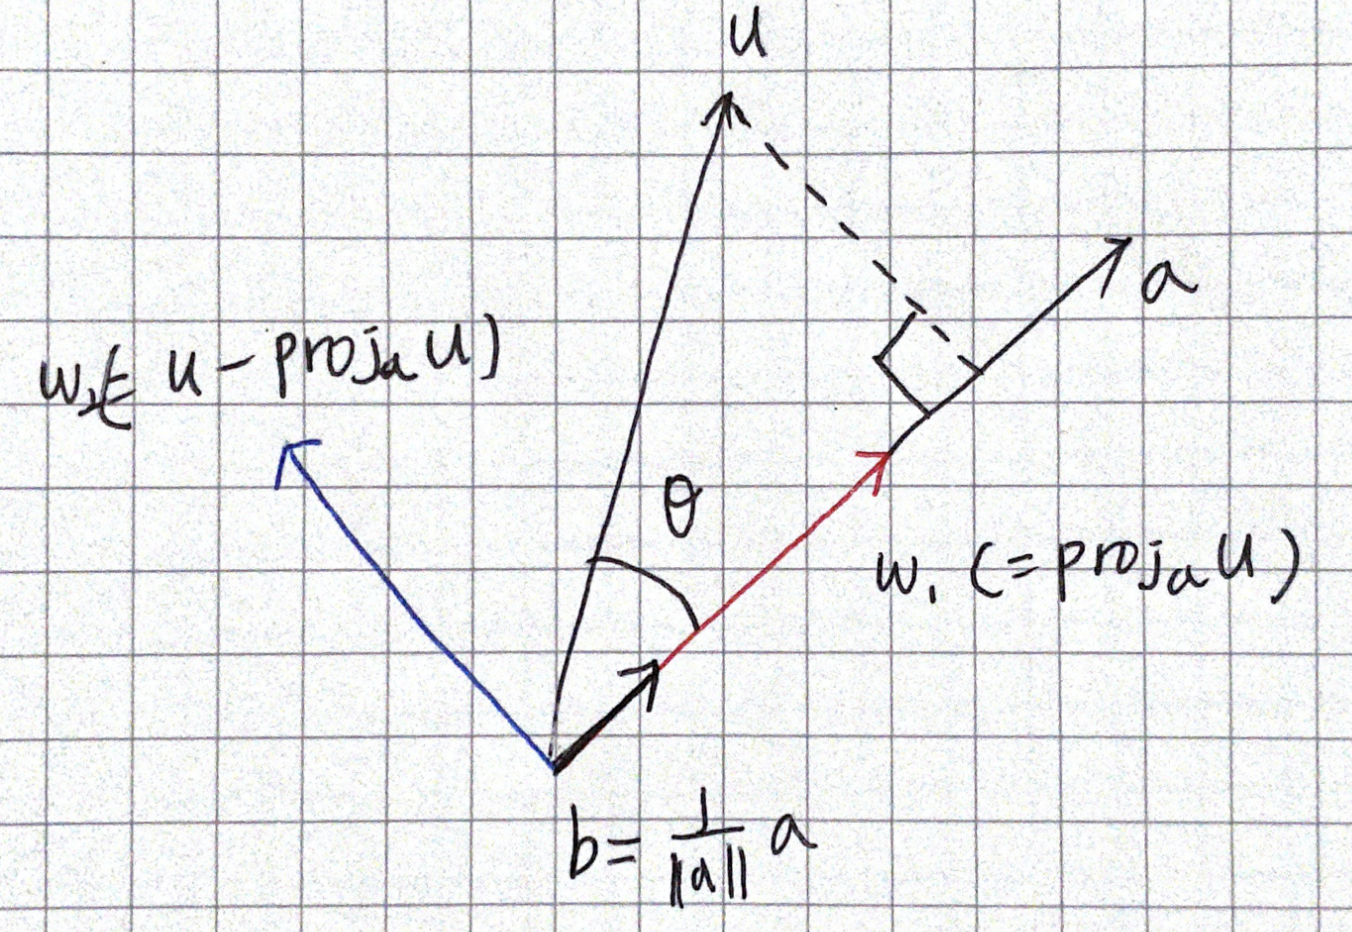 u
a
w₂(= u − projₐu)
θ
w₁ (= projₐu)
b = 1/‖a‖ a